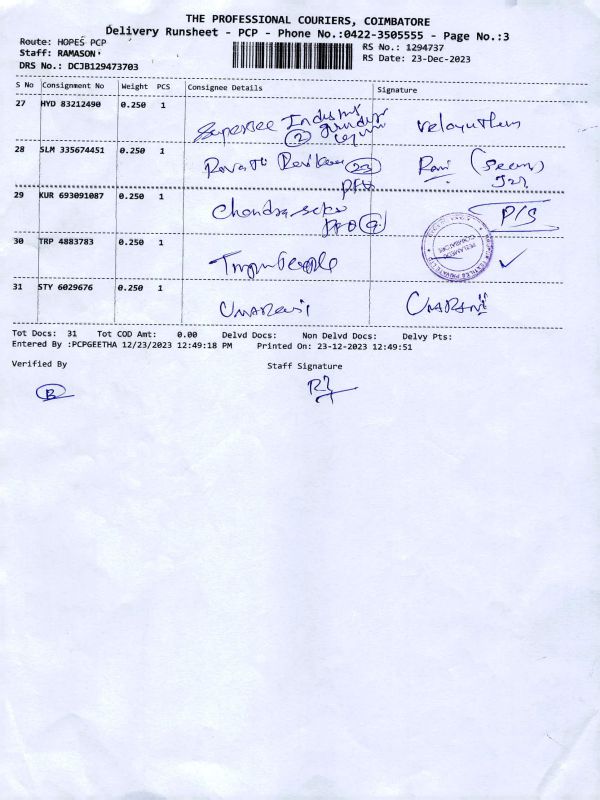 THE PROFESSIONAL COURIERS, COIMBATORE
Delivery Runsheet - PCP - Phone No.:0422-3505555 - Page No.:3
Route: HOPES PCP
RS No.: 1294737
Staff: RAMASON
RS Date: 23-Dec-2023
DRS No.: DCJB129473703
S No Consignment No Weight PCS Consignee Details Signature
27 HYD 83212490 0.250 1
Velayutham
28 SLM 335674451 0.250 1 Revathi 23 Rani
29 KUR 693091087 0.250 1 P/S
Chandrasekar
30 TRP 4883783 0.250 1
31 STY 6029676 0.250 1
Tot Docs: 31 Tot COD Amt: 0.00 Delvd Docs: Non Delvd Docs: Delvy Pts:
Entered By :PCPGEETHA 12/23/2023 12:49:18 PM Printed On: 23-12-2023 12:49:51
Verified By Staff Signature